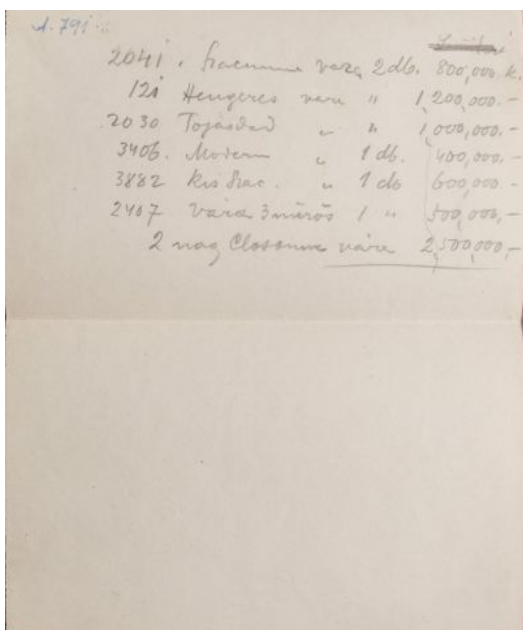 A. 791
2041. Sacumme váza 2 db. 800,000 k.
121 Hengeres váza " 1,200,000.-
2030 Tojásdad " " 1,000,000.-
3406. Modern " 1 db. 400,000.-
3882 Kis Sac. " 1 db 600,000.-
2407 váza 3 műrős 1 " 500,000,-
2 nag Closonne váza 2,500,000,-